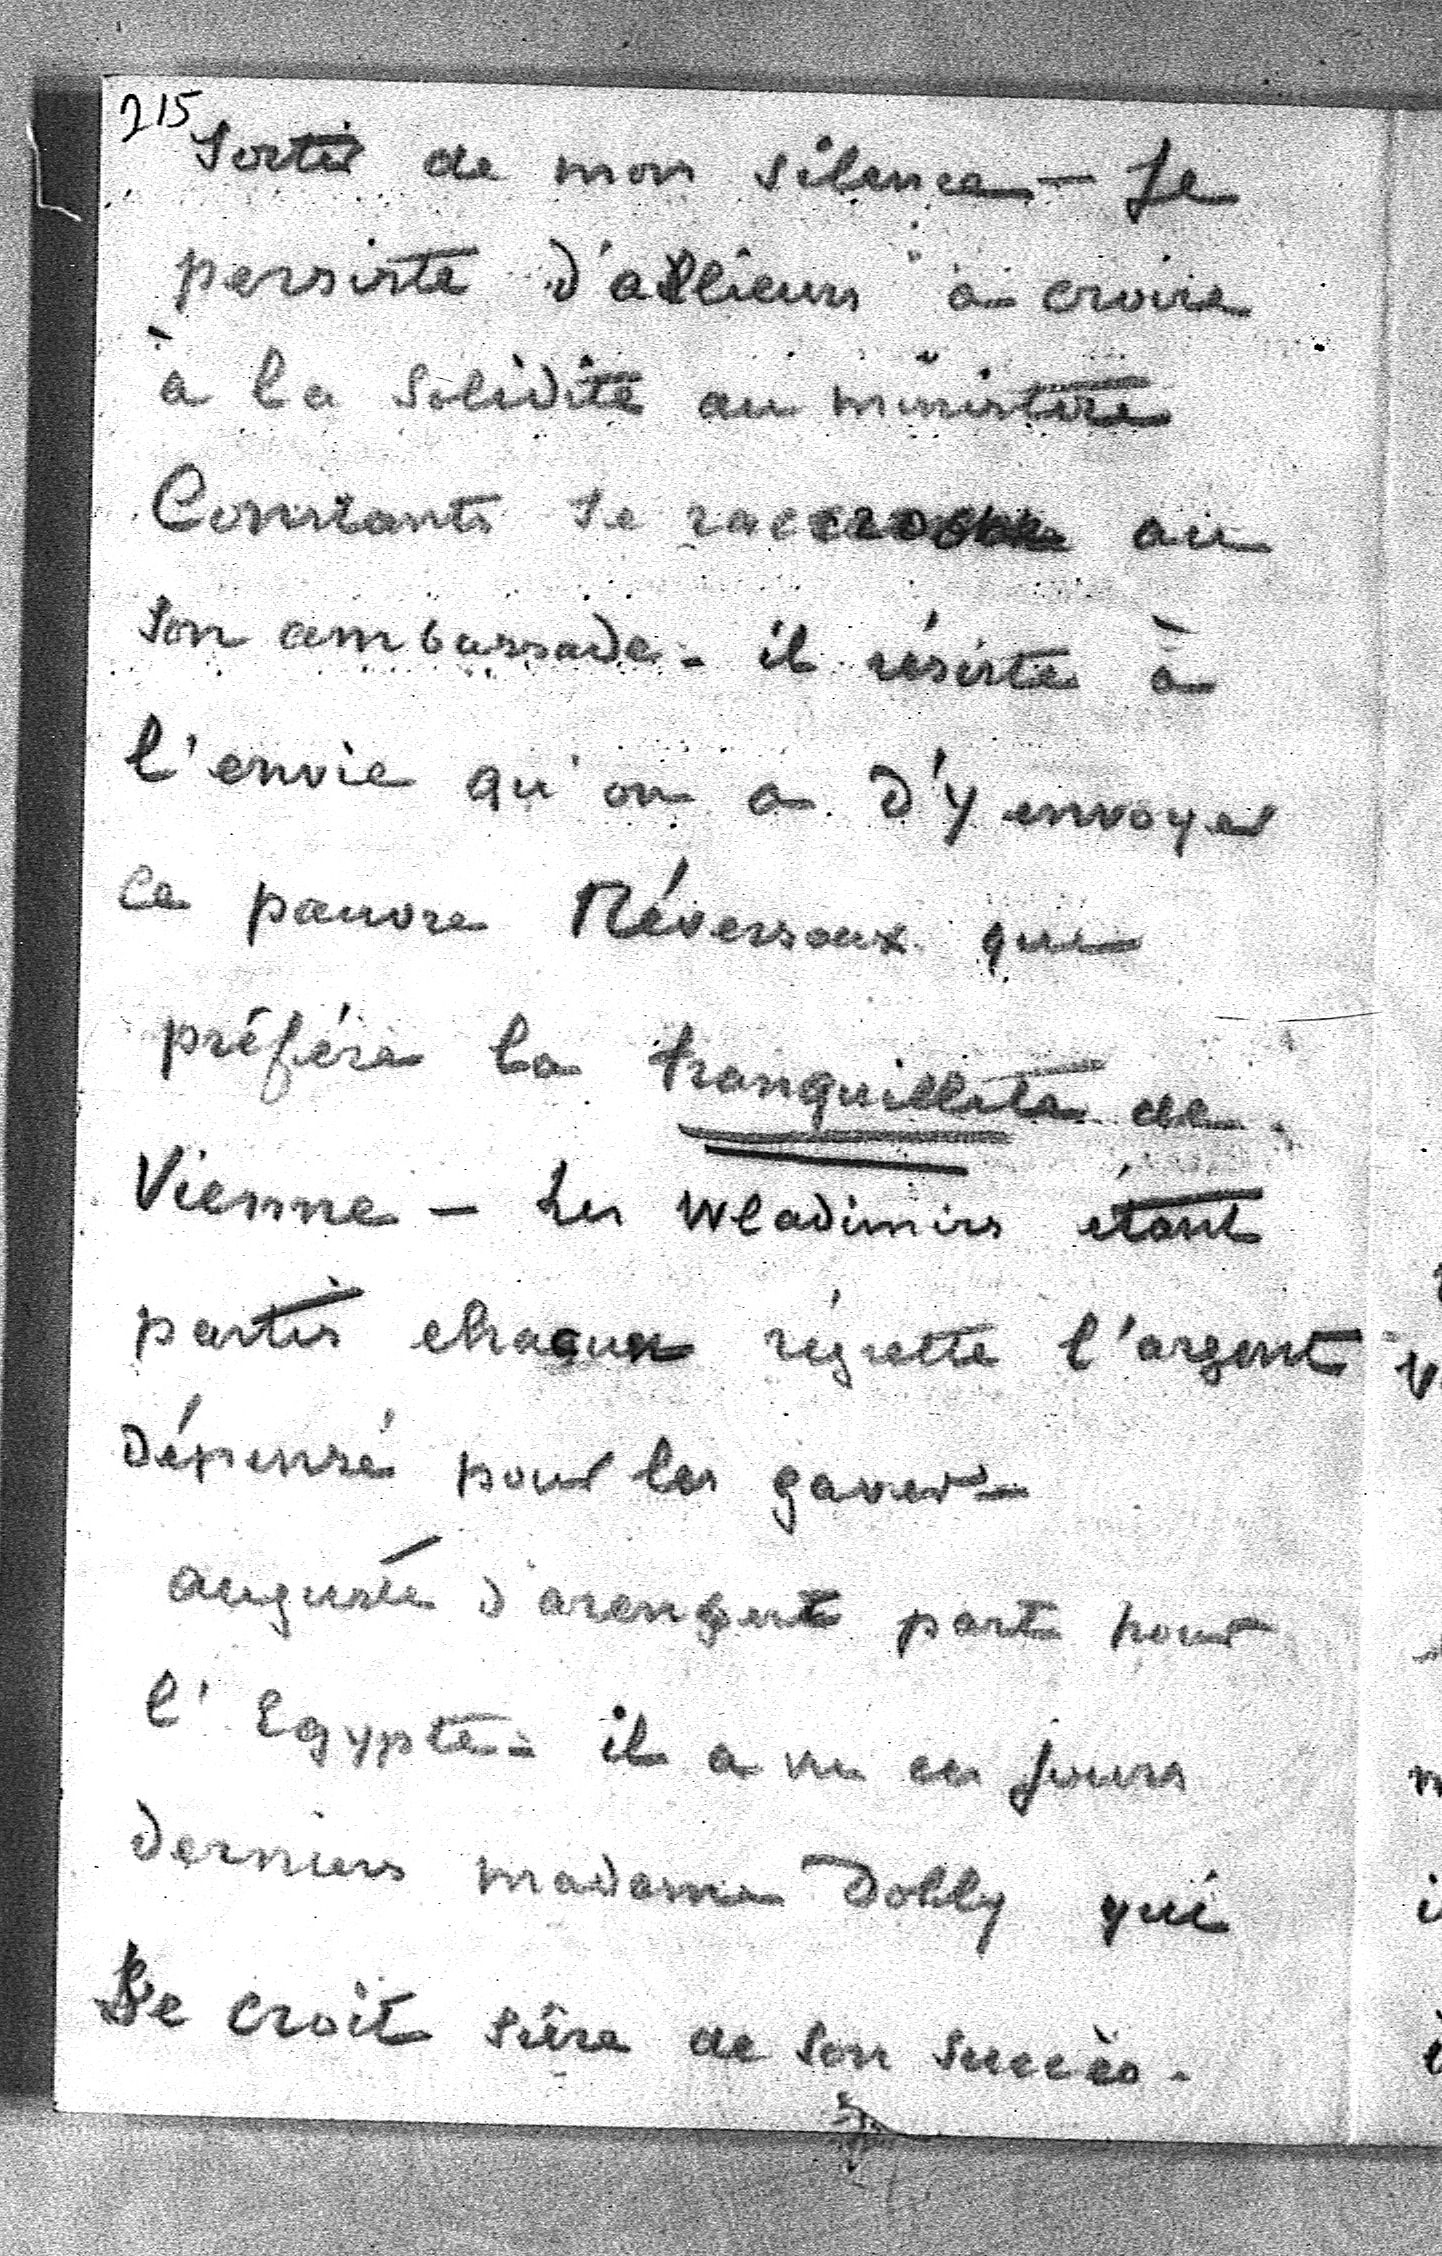 215
sorti de mon silence — Je
persiste d'ailleurs à croire
à la solidité du ministère
Constants se raccroche au
son ambassade - il résiste à
l'envie qu'on a d'y envoyer
ce pauvre Réverseaux qui
préfère la tranquillité de
Vienne — Les Wladimirs étant
partis chacun régrette l'argent
dépensé pour les gaver -
auguste d'arenberg part pour
l'Egypte - il a vu ces jours
derniers madame Dolly qui
se croit sûre de son succès.